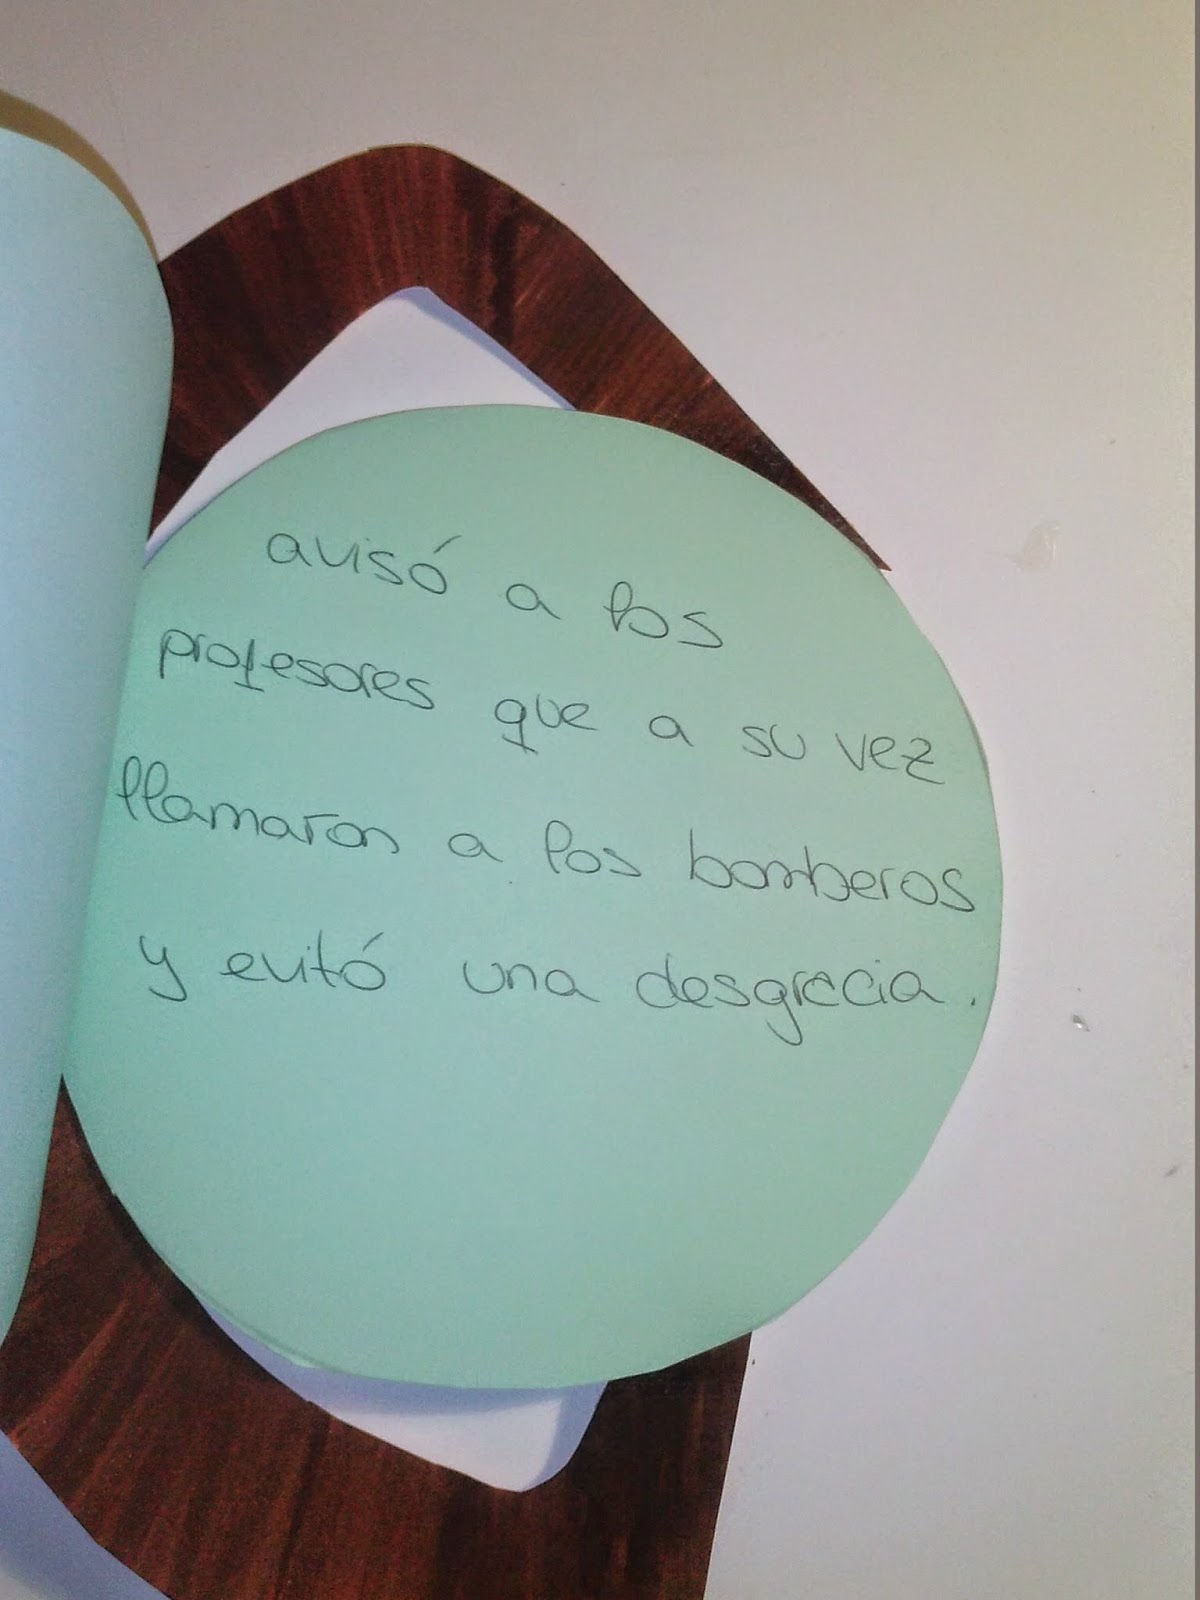 avisó a los
profesores que a su vez
llamaron a los bomberos
y evitó una desgracia.